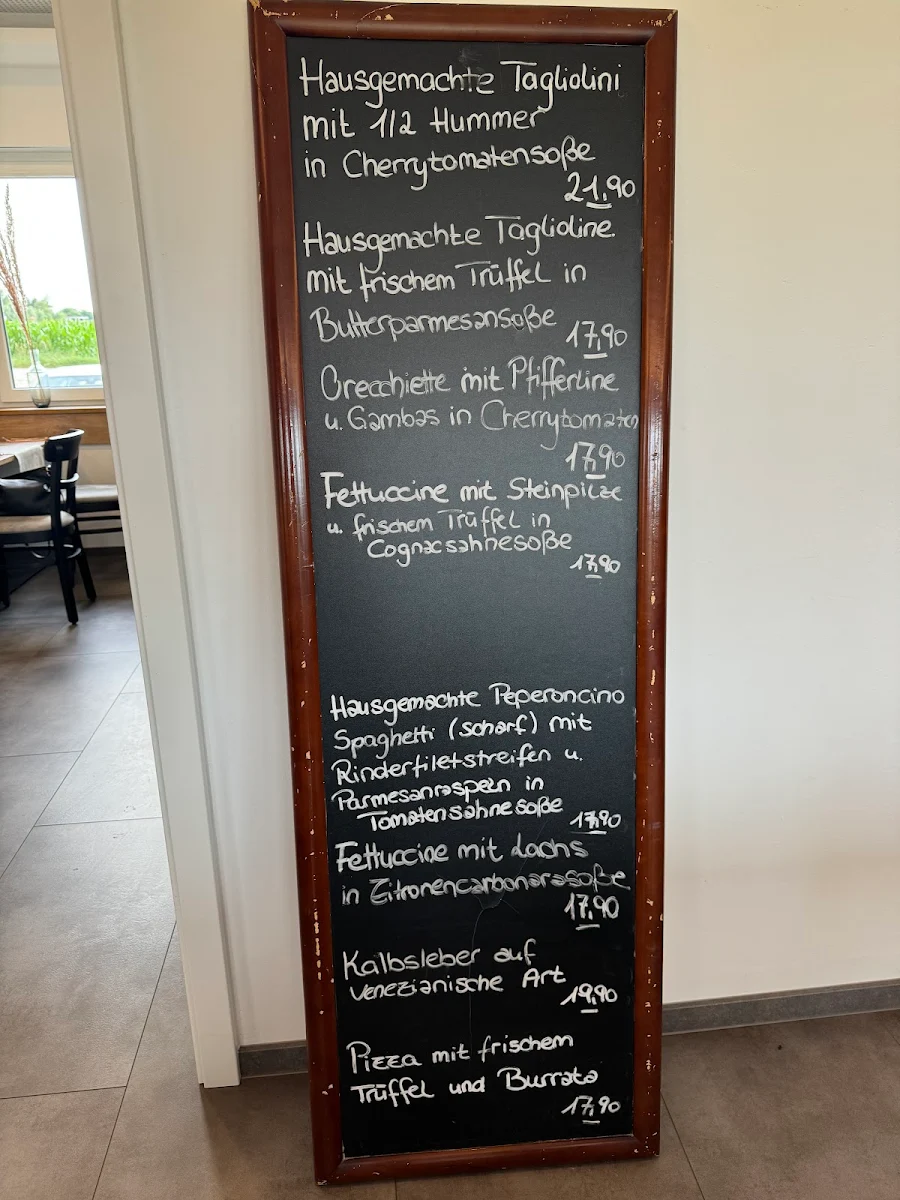 Hausgemachte Tagliolini
mit 1/2 Hummer
in Cherrytomatensoße
21,90
Hausgemachte Taglioline
mit frischem Trüffel in
Butterparmesansoße
17,90
Orecchiette mit Pfifferline
u. Gambas in Cherrytomaten
17,90
Fettuccine mit Steinpilze
u. frischem Trüffel in
Cognacsahnesoße
17,90
Hausgemachte Peperoncino
Spaghetti (scharf) mit
Rinderfiletstreifen u.
Parmesanraspeln in
Tomatensahnesoße
17,90
Fettuccine mit Lachs
in Zitronencarbonarasoße
17,90
Kalbsleber auf
venezianische Art
19,90
Pizza mit frischem
Trüffel und Burrata
17,90